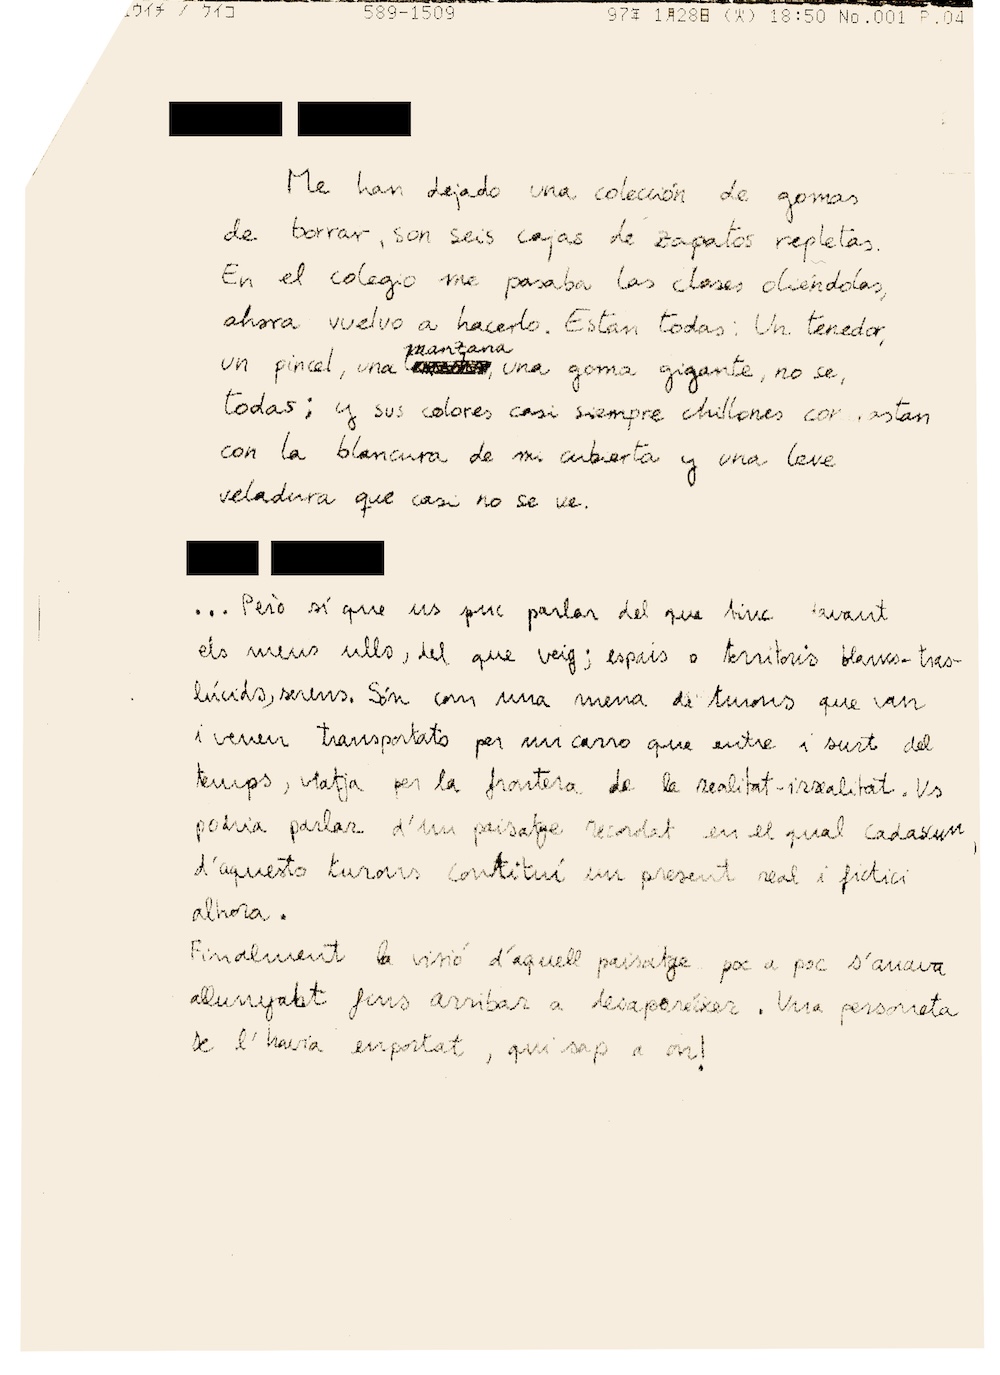 ユウイチ / ケイコ 589-1509 97年 1月28日 (火) 18:50 No.001 P.04
Me han dejado una colección de gomas
de borrar, son seis cajas de zapatos repletas.
En el colegio me pasaba las clases oliéndolas,
ahora vuelvo a hacerlo. Estan todas: Un tenedor,
un pincel, una manzana, una goma gigante, no se,
todas; y sus colores casi siempre chillones con astan
con la blancura de mi cubierta y una leve
veladura que casi no se ve.
... Però sí que us puc parlar del que tinc davant
els meus ulls, del que veig; espais o territoris blancs-tras-
lúcids, serens. Són com una mena de turons que van
i venen transportats per un carro que entre i surt del
temps, viatja per la frontera de la realitat-irrealitat. Us
podria parlar d'un paisatge recordat en el qual cadascun,
d'aquests turons constituí un present real i fictici
alhora.
Finalment la visió d'aquell paisatge poc a poc s'anava
allunyant fins arribar a desaparèixer. Una personeta
se l'havia emportat, qui sap a on!